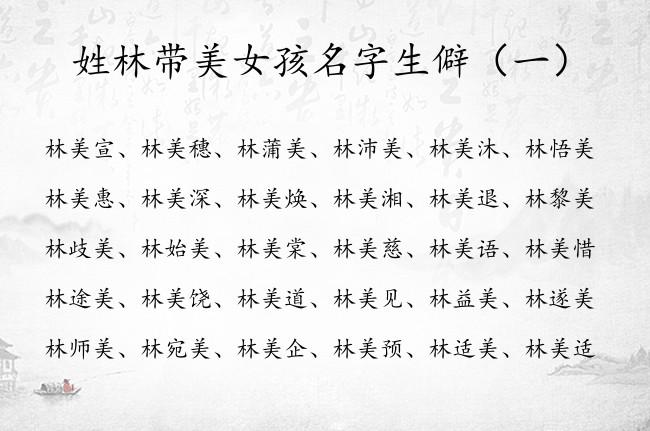 姓林带美女孩名字生僻（一）
林美宣、林美穗、林蒲美、林沛美、林美沐、林悟美
林美惠、林美深、林美焕、林美湘、林美退、林黎美
林歧美、林始美、林美棠、林美慈、林美语、林美惜
林途美、林美饶、林美道、林美见、林益美、林遂美
林师美、林宛美、林美企、林美预、林适美、林美适